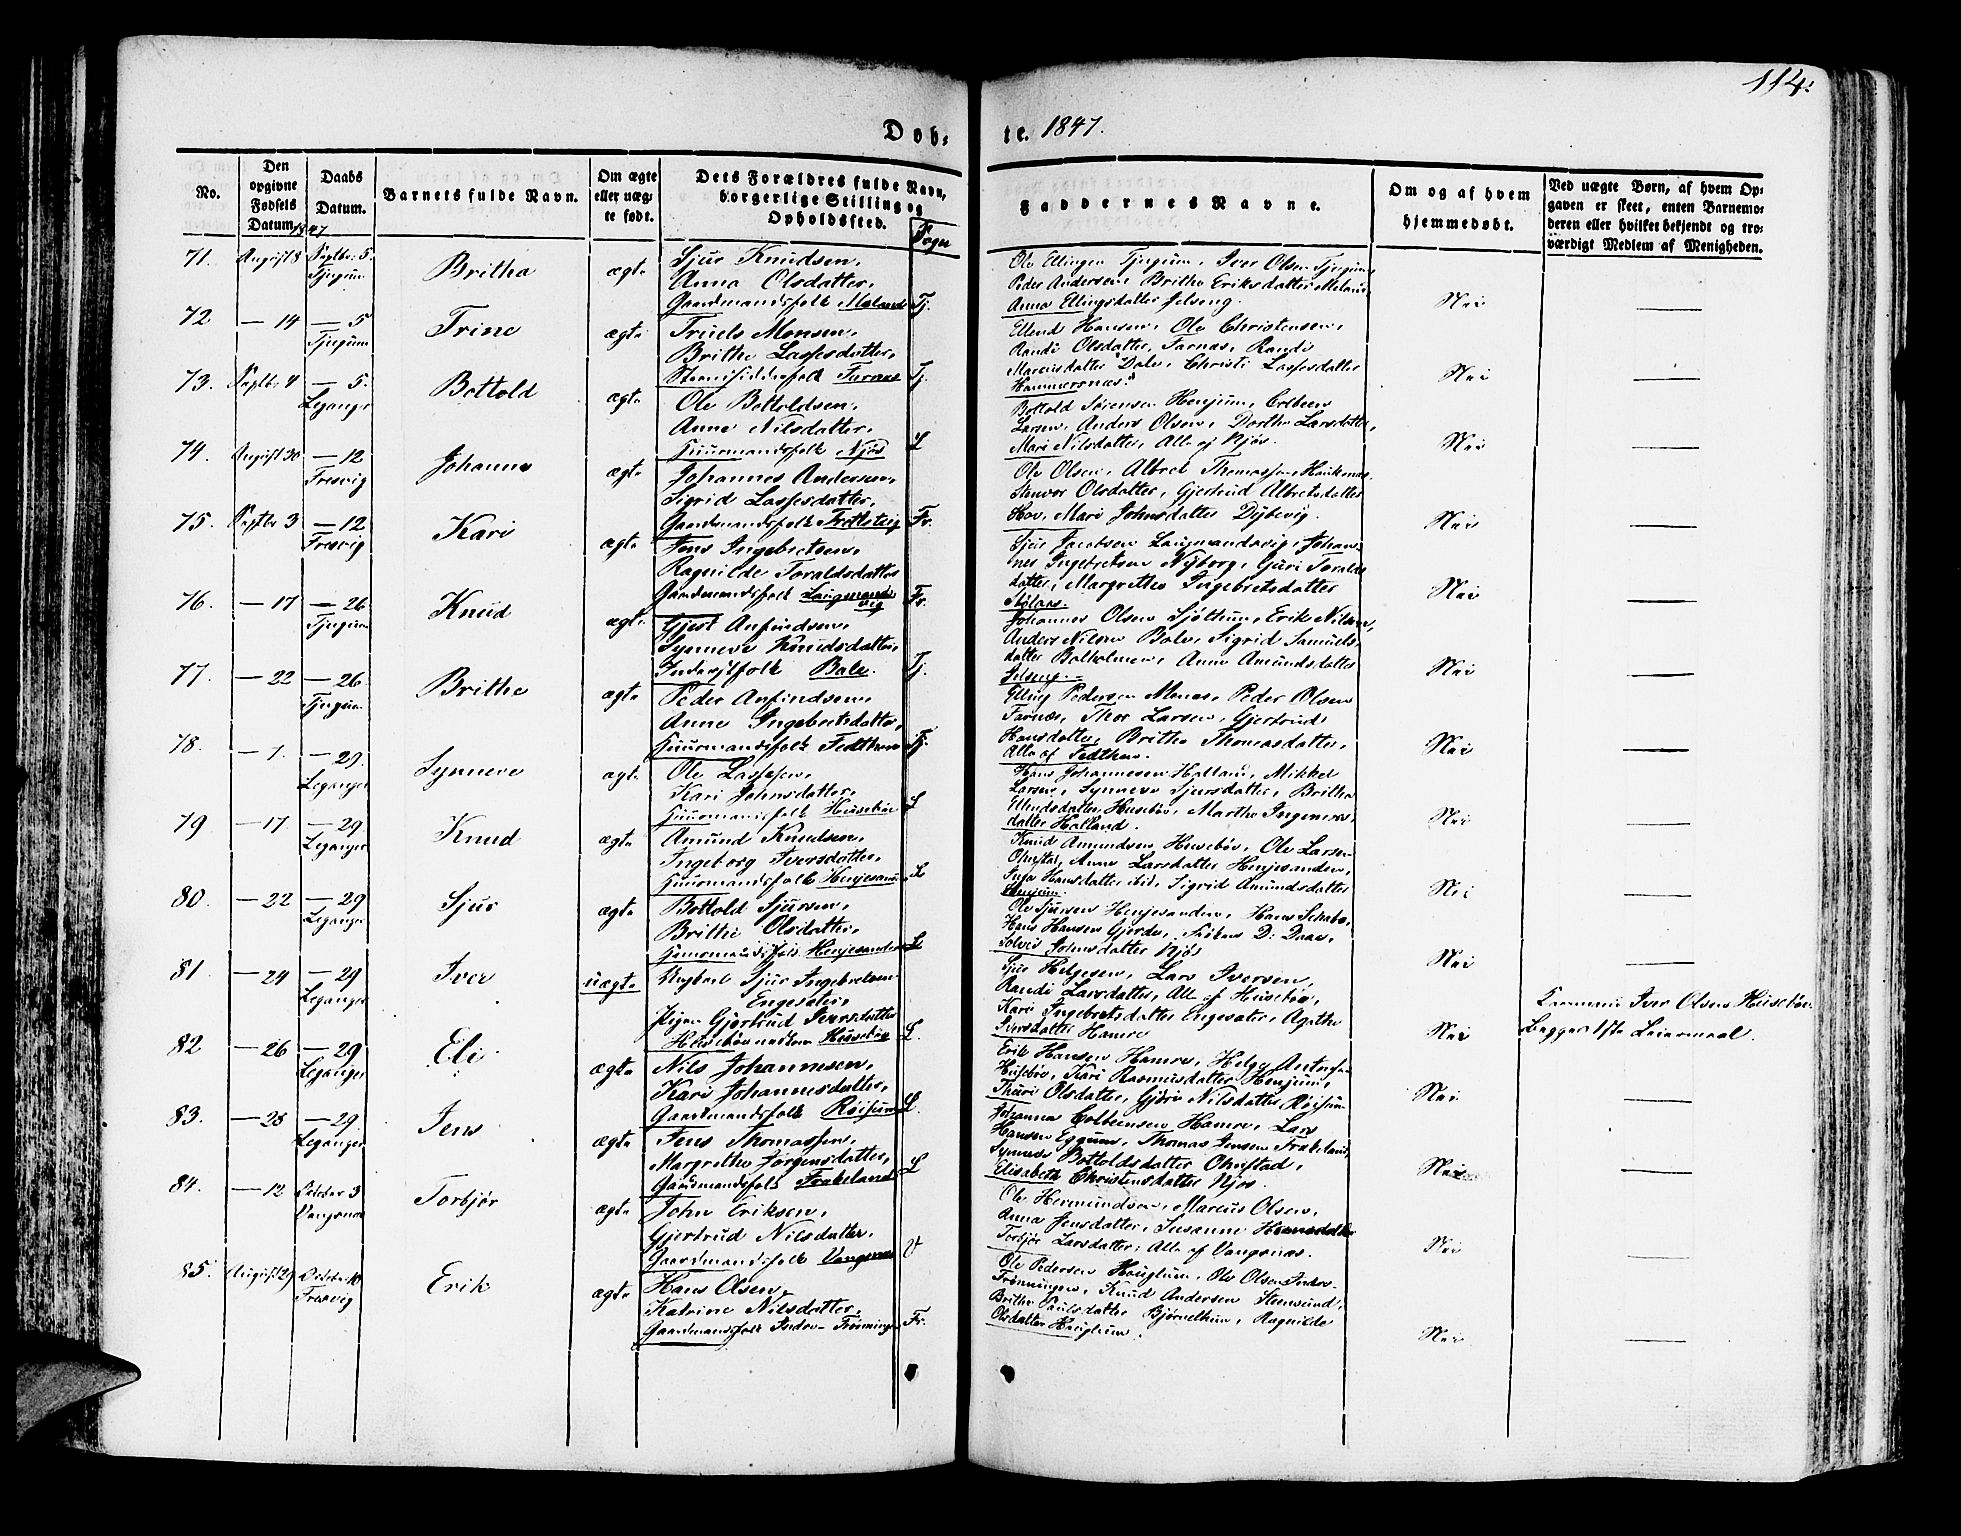 114.
Døb-
te. 1847.
No.
Den opgivne Fødsels Datum.
Daabs Datum.
Barnets fulde Navn.
Om ægte eller uægte født.
Dets Forældres fulde Navn, borgerlige Stilling og Opholdssted.
Sogn
Faddernes Navne.
Om og af hvem hjemmedøbt.
Ved uægte Børn, af hvem Opgaven er skeet, enten Barnemoderen eller hvilket bekjendt og troværdigt Medlem af Menigheden.
1847
71. August 8 Septbr. 5. Tjugum Britha ægte
Sjur Knudsen,
Anna Olsdatter,
Gaardmandsfolk Meland Tj.
Ole Ellingsen Tjugum, Iver Olsen Tjugum,
Peder Andersen, Britha Eriksdatter Meland,
Anna Ellingsdatter
Nei
72 — 14 — 5 Tjugum Trine ægte
Truels Monsen,
Brithe Lassesdatter,
Farnæs Tj.
Ellend Hansen, Ole Christensen,
Randi Olsdatter, Farnæs, Randi
Dale, Christi Lassesdatter
Hammersnæs.
Nei
73. Septbr 4 — 5. Leganger Bottold ægte
Ole Bottoldsen,
Anne Nilsdatter,
Huusmandsfolk Njøs L
Bottold Sørensen Henjum, Colbeen
Larsen, Anders Olsen, Dorthe Larsdatter,
Mari Nilsdatter, Alle af Njøs.
Nei
74. August 30 — 12 Fresvig Johanne ægte
Johannes Andersen,
Sigrid Lassesdatter,
Gaardmandsfolk Fr.
Ole Olsen, Albret Thomassen
Olsdatter, Gjertrud Albretsdatter
Hov, Mari Johnsdatter Dybevig.
Nei
75. Septbr 3 — 12 Fresvig Kari ægte
Jens Ingebretsen,
Ragnilde Toraldsdatter
Gaardmandsfolk Fr.
Sjur Jacobsen Johan-
nes Ingebretsen Nyborg, Guri Toralds
datter, Margrethe Ingebretsdatter
Nei
76. — 17 — 26 Tjugum Knud ægte
Gjest Anfindsen,
Synneve Knudsdatter,
Inderstfolk Bale. Tj.
Johannes Olsen Sjøttum, Erik Nilsen,
Anders Nilsen Bale, Sigrid Samuels
datter Balholmen, Anne Amundsdatter
Nei
77. — 22 — 26 Tjugum Brithe ægte
Peder Anfindsen,
Anne Ingebretsdatter,
Huusmandsfolk Fedthen Tj.
Elling Pedersen Menæs, Peder Olsen
Farnæs, Thor Larsen, Gjertrud
Hansdatter, Brithe Thomasdatter,
Alle af Fedthen.
Nei
78. — 7. — 29. Leganger Synneve ægte
Ole Lassesen,
Kari Johnsdatter,
Huusmandsfolk Husebøe L
Hans Johannesen Halland, Mikkel
Larsen, Synneve Sjursdatter, Britha
Ellendsdatter, Husebøe, Marthe
datter Halland.
Nei
79 — 17. — 29. Leganger Knud ægte
Amund Knudsen,
Ingeborg Iversdatter,
Huusmandsfolk Henjesanden L
Knud Amundsen Husebøe, Ole Larsen
Ohnstad, Anna Larsdatter Henjesanden,
Hansdatter ibid. Sigrid Amundsdatter
Henjum.
Nei
80. — 22 — 29 Leganger Sjur ægte
Bottold Sjursen,
Brithe Olsdatter,
Huusmandsfolk Henjesanden L
Ole Sjursen Henjesanden, Hans
Hans Hansen Gjerde, Frøken D: Daae,
Solvei Johnsdatter Njøs
Nei
81 — 24 — 29 Leganger Iver uægte
Ungkarl Sjur Ingebretsen
Engesæter,
Pigen Gjertrud Iversdatter
Husebøe L.
Sjur Helgesen, Lars Iversen,
Randi Larsdatter, Alle af Husebøe,
Kari Ingebretsdatter Engesæter, Agathe
Iversdatter Hamre
Nei
Iver Olsen Husebøe.
Begges 1ste Leiermaal.
82 — 26 — 29 Leganger Eli ægte
Nils Johannesen,
Kari Johannesdatter,
Gaardmandsfolk Røisum L.
Erik Hansen Hamre, Helge
Husebøe, Kari Rasmusdatter Henjum,
Thuri Olsdatter, Gjøri Nilsdatter Røisum
Nei
83. — 28 — 29 Leganger Jens ægte
Jens Thomassen,
Margrethe Jørgensdatter,
Gaardmandsfolk L
Johanna Colbeensen Hamre, Lars
Hansen Eggum, Thomas Jensen
Synneve Bottoldsdatter Ohnstad,
Elisabeth Christensdatter Njøs.
Nei
84. — 12 October 3 Vangsnæs Torbjør ægte
John Eriksen,
Gjertrud Nilsdatter,
Gaardmandsfolk Vangsnæs V
Ole Hermundsen, Marcus Olsen,
Anna Jensdatter, Susanne
Torbjør Larsdatter; Alle af Vangsnæs.
Nei
85. August 29 October 10 Fresvig Erik ægte
Hans Olsen,
Katrine Nilsdatter,
Gaardmandsfolk Indre-Frønningen Fr.
Ole Pedersen Hauglum, Ole Olsen Indre-
Frønningen, Knud Andersen Steensund,
Brithe Poulsdatter Ragnilde
Olsdatter Hauglum.
Nei